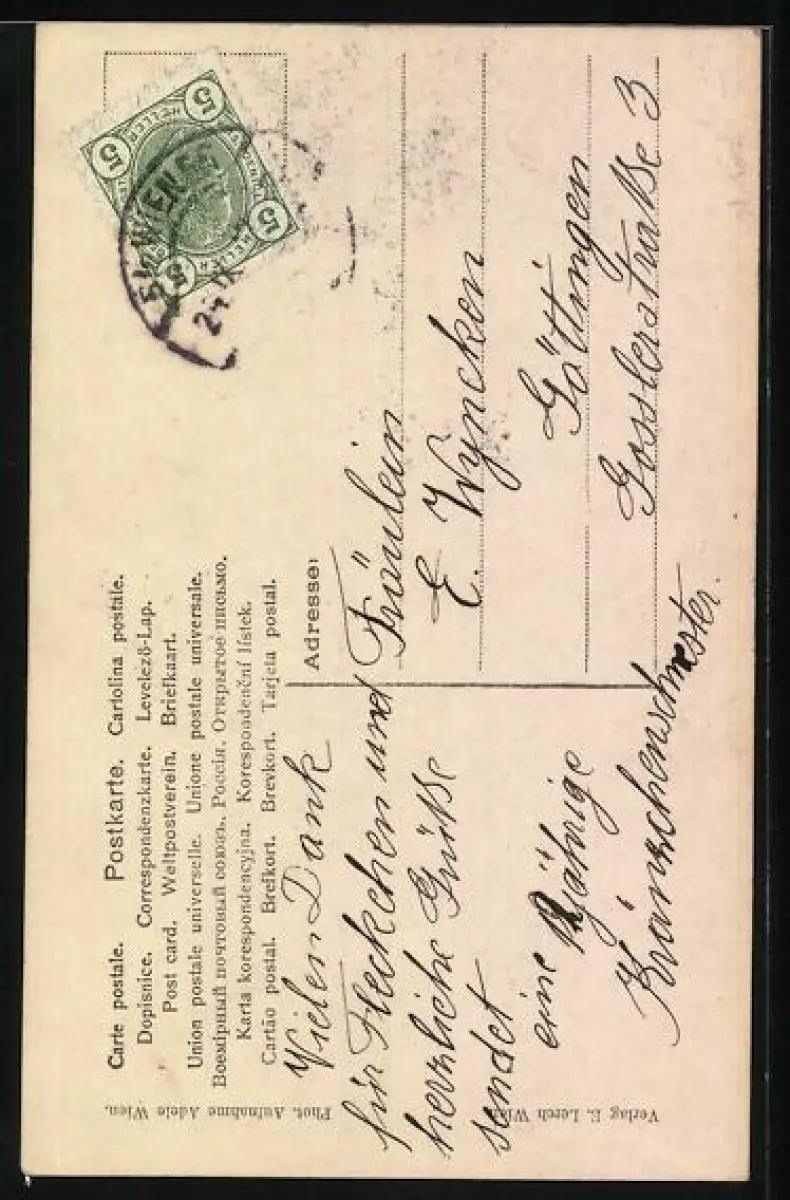 Carte postale. Postkarte. Cartolina postale.
Dopisnice. Correspondenzkarte. Levelező-Lap.
Post card. Weltpostverein. Briefkaart.
Union postale universelle. Unione postale universale.
Всемірный почтовый союзъ. Россія. Открытое письмо.
Karta korespondencyjna. Korespondenční lístek.
Cartão postal. Brefkort. Brevkort. Tarjeta postal.
Adresse:
Vielen Dank
für Fleckchen und
herzliche Grüße
sendet
eine jährige
Kränzchenschwester.
Fräulein
E. Wyncken
Göttingen
Gosslerstraße 3
5 HELLER 5
5 HELLER 5
WIEN
24 IX
Phot. Aufnahme Adele Wien.
Verlag E. Lerch Wien